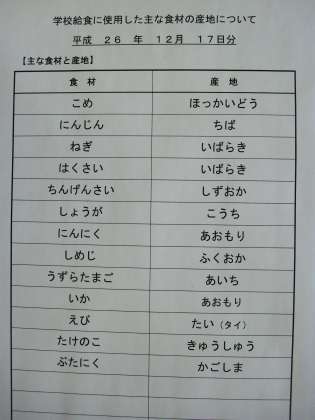 学校給食に使用した主な食材の産地について
平成 26 年 12月 17日分
【主な食材と産地】
食 材 産 地
こめ ほっかいどう
にんじん ちば
ねぎ いばらき
はくさい いばらき
ちんげんさい しずおか
しょうが こうち
にんにく あおもり
しめじ ふくおか
うずらたまご あいち
いか あおもり
えび たい（タイ）
たけのこ きゅうしゅう
ぶたにく かごしま